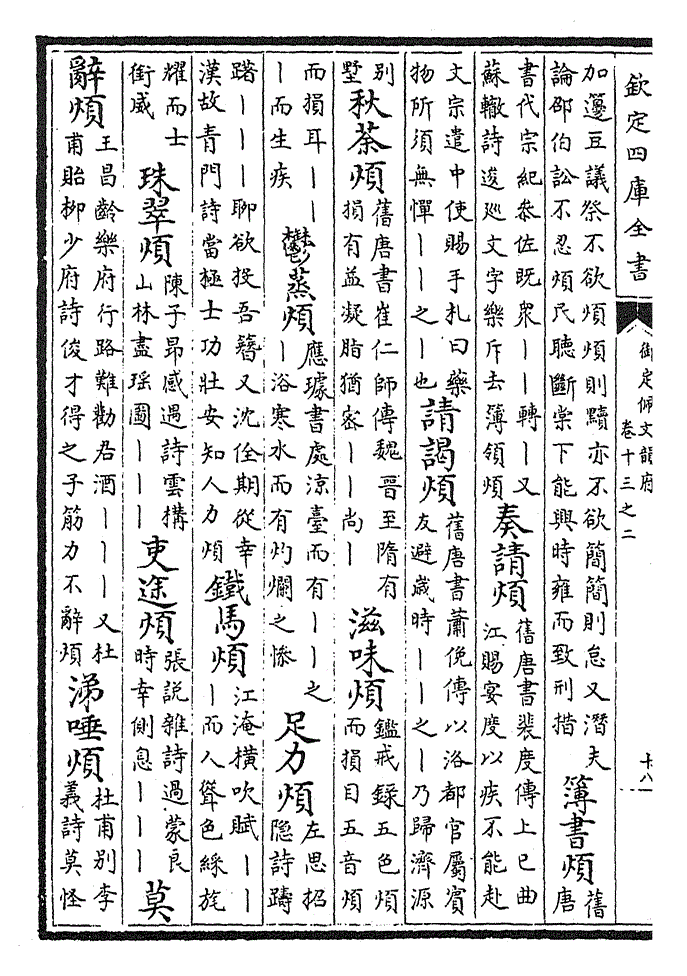 欽定四庫全書
御定佩文韻府
卷十三之二
十八
加籩豆議祭不欲煩煩則黷亦不欲簡簡則怠又潛夫
論邵伯訟不忍煩民聽斷棠下能興時雍而致刑措
簿書煩
舊
唐
書代宗紀叅佐既衆丨丨轉丨又
蘇轍詩逡廵文字樂斥去簿領煩
奏請煩
舊唐書裴度傳上巳曲
江賜宴度以疾不能赴
文宗遣中使賜手札曰藥
物所須無憚丨丨之丨也
請謁煩
舊唐書蕭俛傳以洛都官屬賓
友避歳時丨丨之丨乃歸濟源
別
墅
秋荼煩
舊唐書崔仁師傳魏晉至隋有
損有益凝脂猶宻丨丨尚丨
滋味煩
鑑戒録五色煩
而損目五音煩
而損耳丨丨
丨而生疾
鬱蒸煩
應璩書處涼臺而有丨丨之
丨浴寒水而有灼爛之慘
足力煩
左思招
隐詩躊
躇丨丨丨聊欲投吾簪又沈佺期從幸
漢故青門詩當極士功壯安知人力煩
鐵馬煩
江淹横吹賦丨丨
丨而人聳色綵旄
耀而士
銜威
珠翠煩
陳子昂感遇詩雲構
山林盡瑶圖丨丨丨
吏途煩
張説雜詩過蒙良
時幸側息丨丨丨
莫
辭煩
王昌齡樂府行路難勸君酒丨丨丨又杜
甫貽栁少府詩俊才得之子筋力不辭煩
涕唾煩
杜甫別李
義詩莫怪